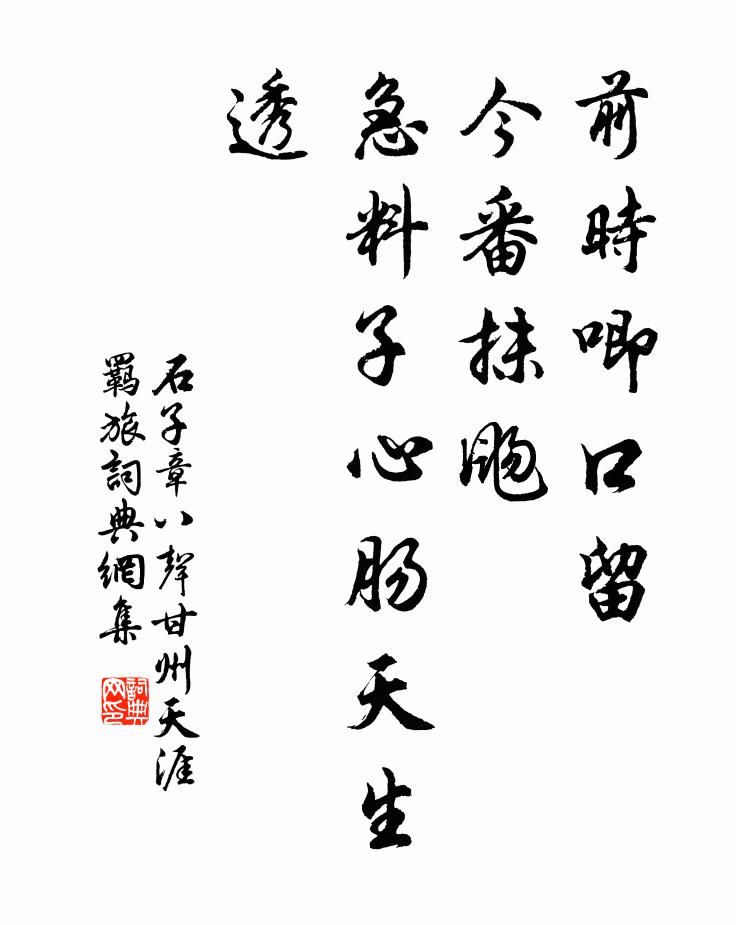 前時唧口留
今番抹颩
急料子心肠天生
透
石子章八聲甘州天涯
羈旅詞典網集
詞典网印